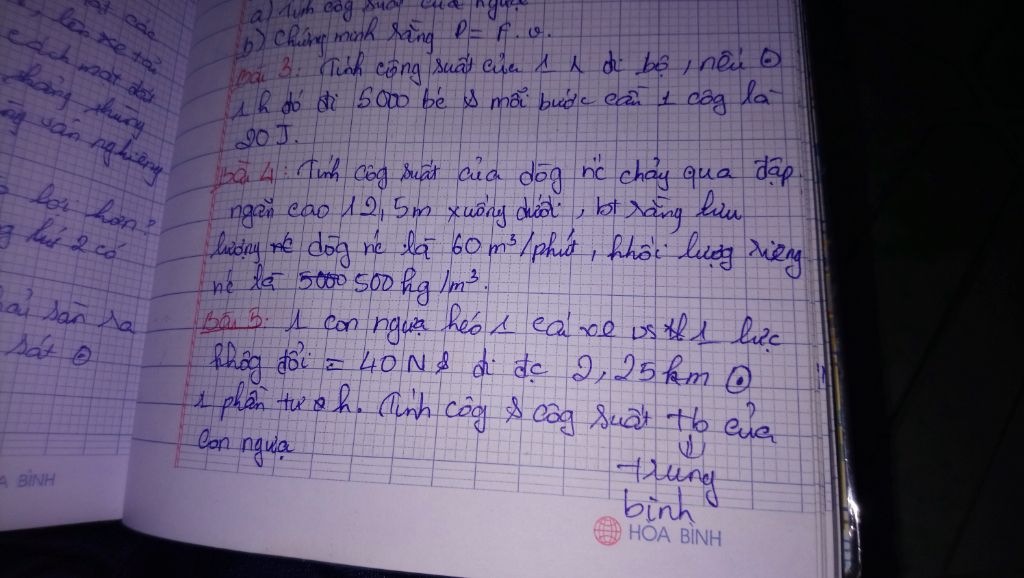 a) Tính côg suất của ngựa
b) Chứng minh rằng P = F.v.
Bài 3: Tính công suất của 1 2 đi bộ, nếu ⊙
1h đó đi 5000 bć & mỗi bước cần 1 côg là
20 J.
Bài 4: Tính côg suất của dōg nć chảy qua đập
ngăn cao 12,5m xuống dưới, bt rằng lưu
lượng dōg nć là 60 m³/phút, khối lượg riêng
nć là 500 kg/m³.
Bài 5: 1 con ngựa kéo 1 cái xe vs 1 lực
khôg đổi = 40N & đi đc 2,25km ⊙
1 phần tư h. Tính côg & côg suất tb của
con ngựa
⇓
trung
bình
HÒA BÌNH
A BÌNH
lên xe tải
cách mặt đất
thùng
sàn nghiêng
lợi hơn?
2 có
sàn là
sát ⊙